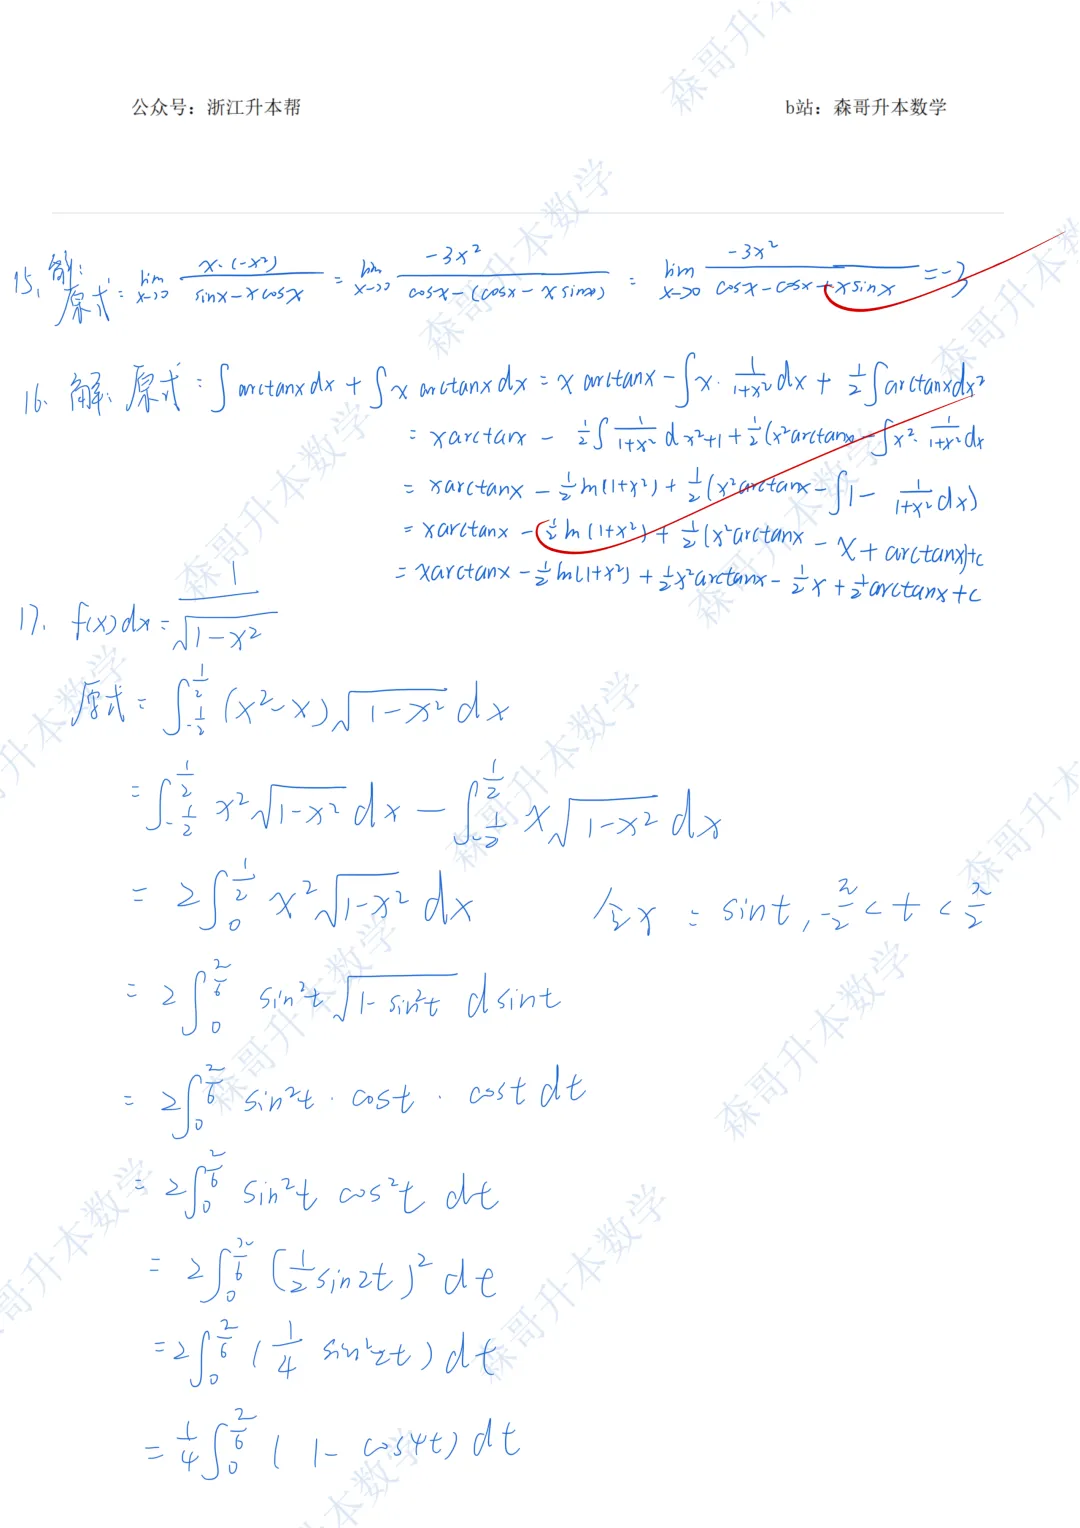 公众号：浙江升本帮
b站：森哥升本数学
15. 解: 原式 = lim x→0 x·(-x²)/(sinx-xcosx) = lim x→0 -3x²/(cosx-(cosx-xsinx)) = lim x→0 -3x²/(cosx-cosx+xsinx) = -3
16. 解: 原式 = ∫arctanxdx + ∫x arctanxdx = x arctanx - ∫x·1/(1+x²)dx + 1/2∫arctanxdx²
= xarctanx - 1/2∫1/(1+x²)dx²+1 + 1/2(x²arctanx - ∫x²·1/(1+x²)dx
= xarctanx - 1/2ln(1+x²) + 1/2(x²arctanx - ∫1 - 1/(1+x²)dx)
= xarctanx - 1/2ln(1+x²) + 1/2(x²arctanx - x + arctanx)+c
= xarctanx - 1/2ln(1+x²) + 1/2x²arctanx - 1/2x + 1/2arctanx + c
17. f(x)dx = 1/√(1-x²)
原式 = ∫_{-1/2}^{1/2} (x²-x)√(1-x²) dx
= ∫_{-1/2}^{1/2} x²√(1-x²) dx - ∫_{-1/2}^{1/2} x√(1-x²) dx
= 2∫_0^{1/2} x²√(1-x²) dx 令x = sint, -π/2 < t < π/2
= 2∫_0^{π/6} sin²t √(1-sin²t) dsint
= 2∫_0^{π/6} sin²t · cost · cost dt
= 2∫_0^{π/6} sin²t cos²t dt
= 2∫_0^{π/6} (1/2 sin2t)² dt
= 2∫_0^{π/6} (1/4 sin²2t) dt
= 1/4∫_0^{π/6} (1-cos4t) dt
森哥升本数学